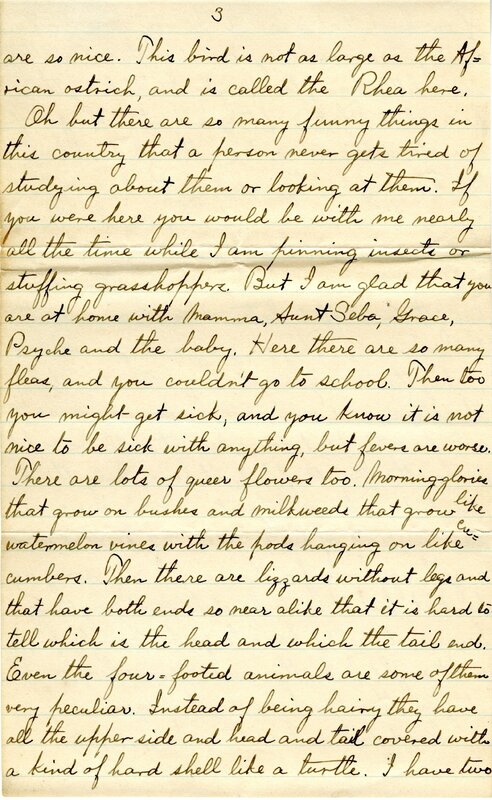 3
are so nice. This bird is not as large as the Af=
rican ostrich, and is called the Rhea here.
Oh but there are so many funny things in
this country that a person never gets tired of
studying about them or looking at them. If
you were here you would be with me nearly
all the time while I am pinning insects or
stuffing grasshoppers. But I am glad that you
are at home with Mamma, Aunt Seba, Grace,
Psyche and the baby. Here there are so many
fleas, and you couldn't go to school. Then too
you might get sick, and you know it is not
nice to be sick with anything, but fevers are worse.
There are lots of queer flowers too. Morningglories
that grow on bushes and milkweeds that grow like
watermelon vines with the pods hanging on like cu=
cumbers. Then there are lizzards without legs and
that have both ends so near alike that it is hard to
tell which is the head and which the tail end.
Even the four=footed animals are some of them
very peculiar. Instead of being hairy they have
all the upper side and head and tail covered with
a kind of hard shell like a turtle. I have two